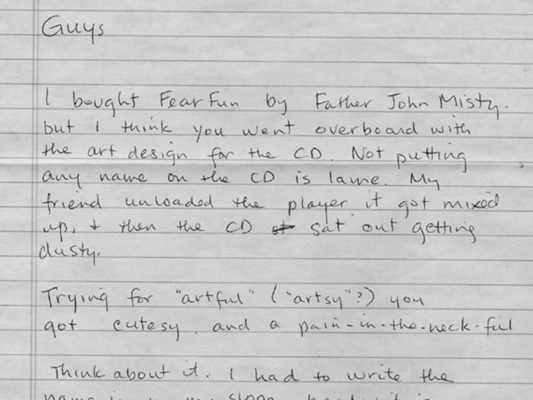 Guys
I bought Fear Fun by Father John Misty.
but I think you went overboard with
the art design for the CD. Not putting
any name on the CD is lame. My
friend unloaded the player it got mixed
up, & then the CD sat out getting
dusty.
Trying for "artful" ("artsy"?) you
got cutesy. and a pain-in-the-neck-ful
Think about it. I had to write the
name in my